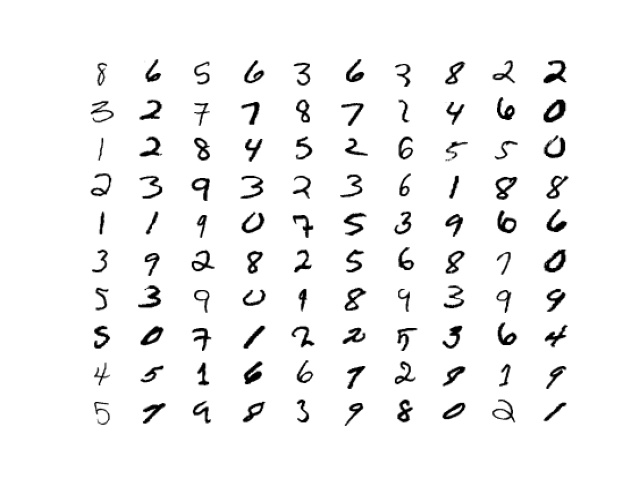 8 6 5 6 3 6 3 8 2 2
3 2 7 7 8 7 2 4 6 0
1 2 8 4 5 2 6 5 5 0
2 3 9 3 2 3 6 1 8 8
1 1 9 0 7 5 3 9 6 6
3 9 2 8 2 5 6 8 7 0
5 3 9 0 9 8 9 3 9 9
5 0 7 1 2 2 5 3 6 4
4 5 1 6 6 7 2 8 1 9
5 7 9 8 3 9 8 0 2 1